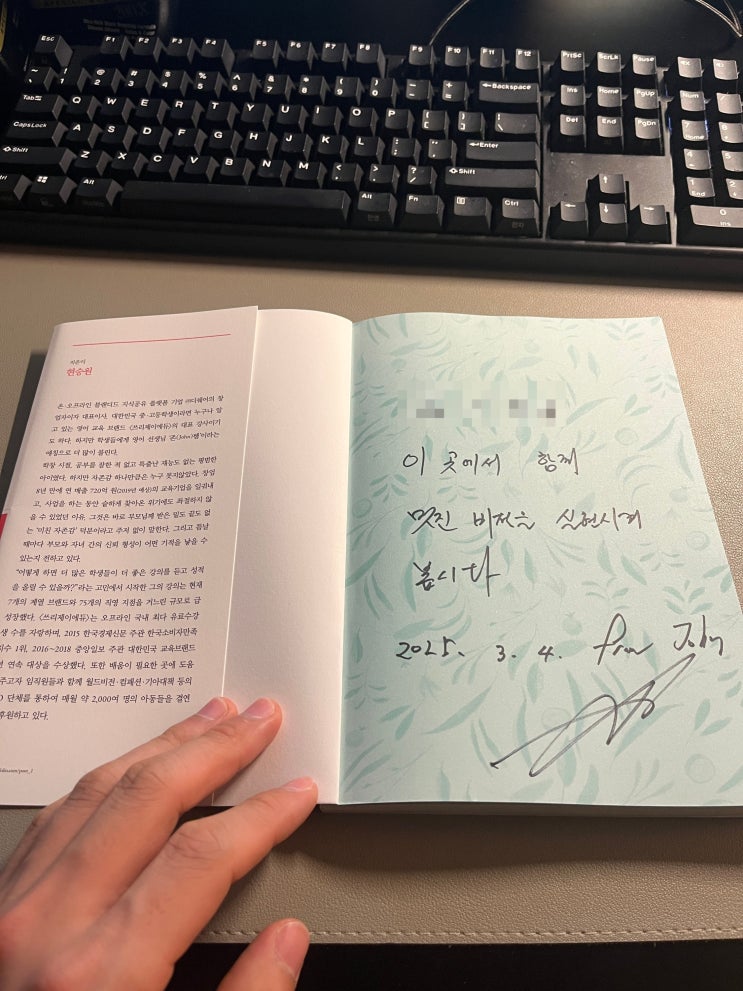 Esc F1 F2 F3 F4 F5 F6 F7 F8 F9 F10 F11 F12 PrtSc ScrLk Pause
~ ! 1 @ 2 # 3 $ 4 % 5 ^ 6 & 7 * 8 ( 9 ) 0 - + = Backspace Ins Home PgUp Num
Tab Q W E R T Y U I O P { [ } ] | \ Del End PgDn Home
CapsLock A S D F G H J K L : ; " ' Enter 4 5
Shift Z X C V B N M < , > . ? / Shift ↑ 1 End 2
Alt Alt 한영 Fn Ctrl 한자 ← ↓ → 0 Ins
지은이
현승원
온·오프라인 블랜디드 지식공유 플랫폼 기업 ㈜디쉐어의 창
업자이자 대표이사. 대한민국 중·고등학생이라면 누구나 알
고 있는 영어 교육 브랜드 〈쓰리제이에듀〉의 대표 강사이기
도 하다. 하지만 학생들에게 영어 선생님 '존(John)쌤'이라는
애칭으로 더 많이 불린다.
학창 시절, 공부를 잘한 적 없고 특출난 재능도 없는 평범한
아이였다. 하지만 자존감 하나만큼은 누구 못지않았다. 창업
8년 만에 연 매출 720억 원(2019년 예상)의 교육기업을 일궈내
고, 사업을 하는 동안 숱하게 찾아온 위기에도 좌절하지 않
을 수 있었던 이유, 그것은 바로 부모님께 받은 밑도 끝도 없
는 '미친 자존감' 덕분이라고 주저 없이 말한다. 그리고 틈날
때마다 부모와 자녀 간의 신뢰 형성이 어떤 기적을 낳을 수
있는지 전하고 있다.
"어떻게 하면 더 많은 학생들이 더 좋은 강의를 듣고 성적
을 올릴 수 있을까?"라는 고민에서 시작한 그의 강의는 현재
7개의 계열 브랜드와 75개의 직영 지점을 거느린 규모로 급
성장했다. 〈쓰리제이에듀〉는 오프라인 국내 최다 유료수강
생 수를 자랑하며, 2015 한국경제신문 주관 한국소비자만족
지수 1위, 2016~2018 중앙일보 주관 대한민국 교육브랜드
연속 대상을 수상했다. 또한 배움이 필요한 곳에 도움
주고자 임직원들과 함께 월드비전·컴패션·기아대책 등의
단체를 통하여 매월 약 2,000여 명의 아동들을 결연
후원하고 있다.
이 곳에서 함께
멋진 비전을 실현시켜
봅시다
2025. 3. 4. from John